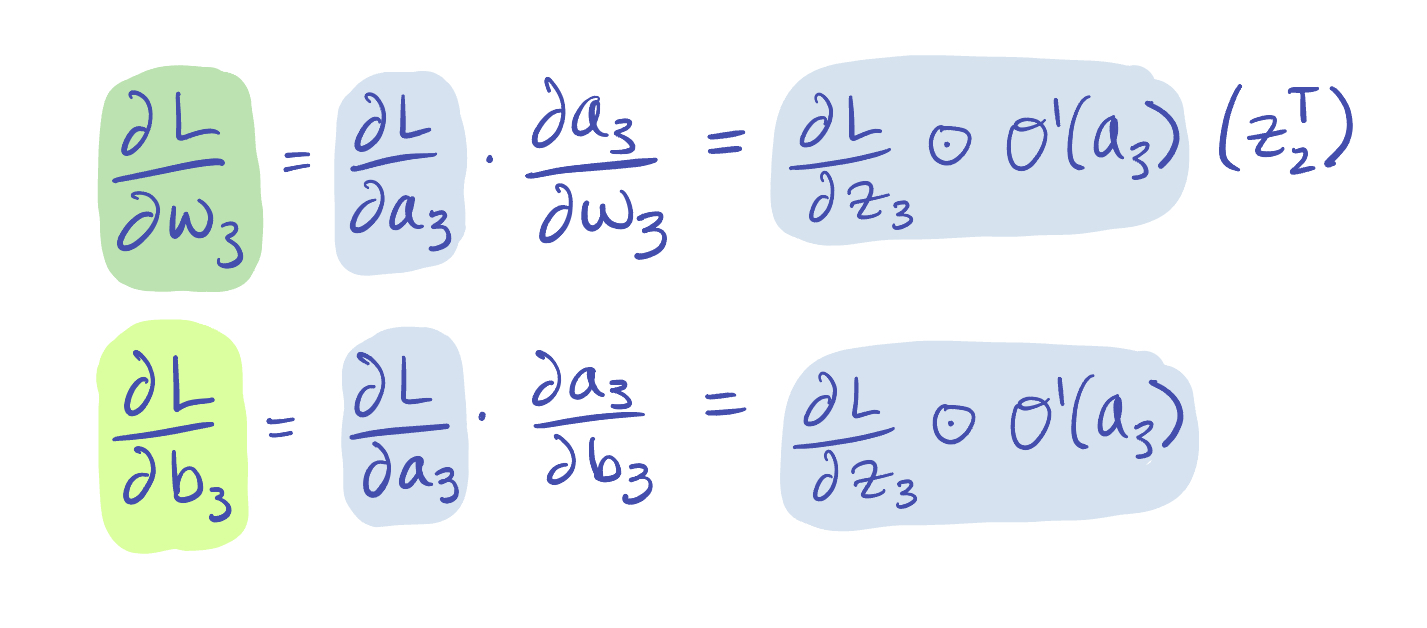 ∂L/∂w₃ = ∂L/∂a₃ · ∂a₃/∂w₃ = ∂L/∂z₃ ⊙ σ'(a₃) (z₂ᵀ)
∂L/∂b₃ = ∂L/∂a₃ · ∂a₃/∂b₃ = ∂L/∂z₃ ⊙ σ'(a₃)